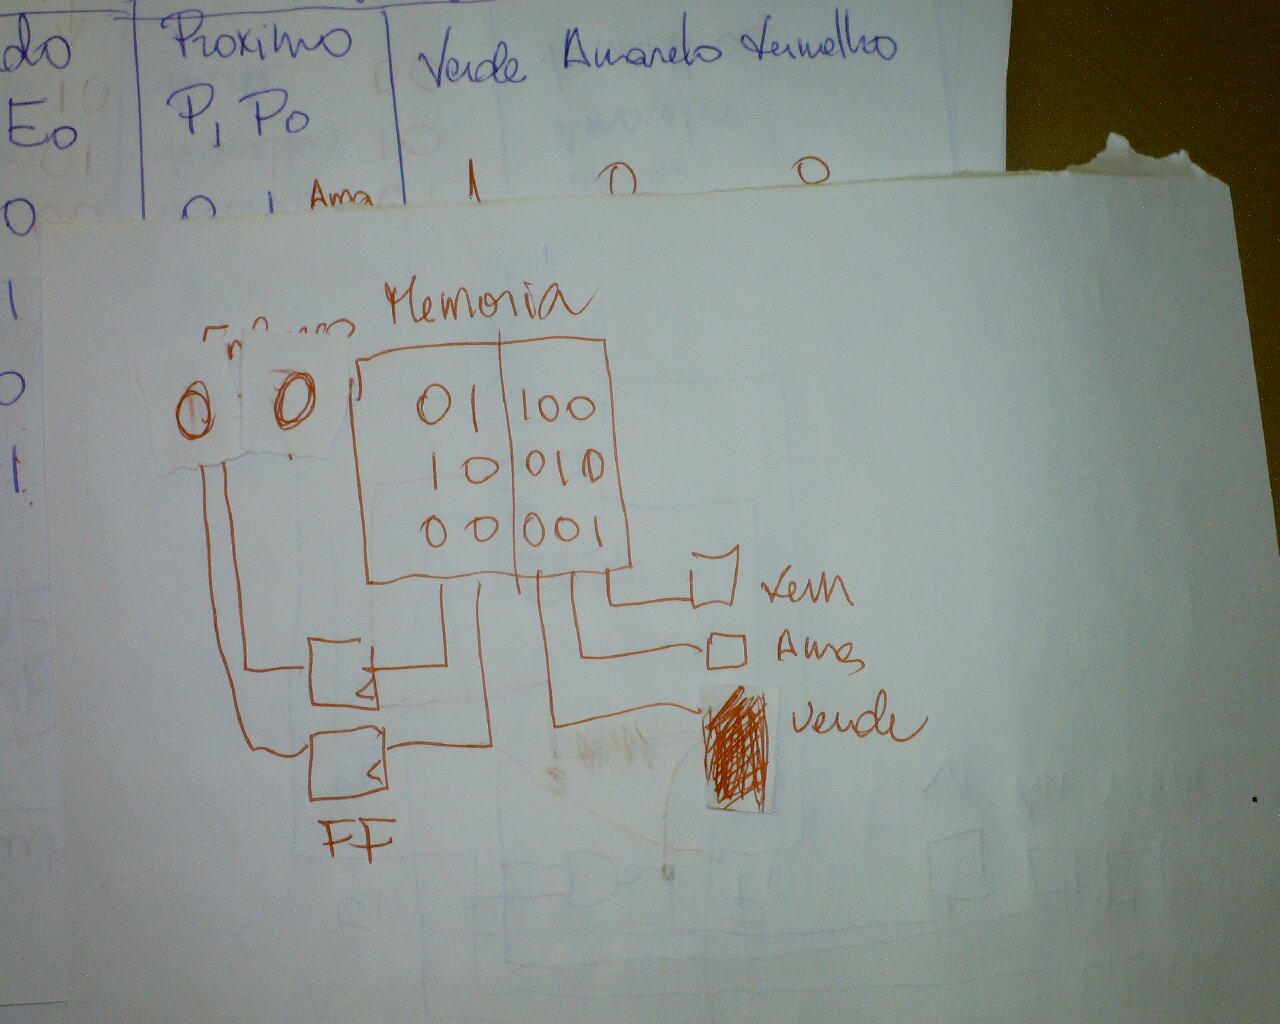 do Proximo Verde Amarelo Vermelho
E0 P1 P0
0 0 1 Ama 1 0 0
1
0
1
Memoria
0 0
01 100
10 010
00 001
Verm
Ama
Verde
FF